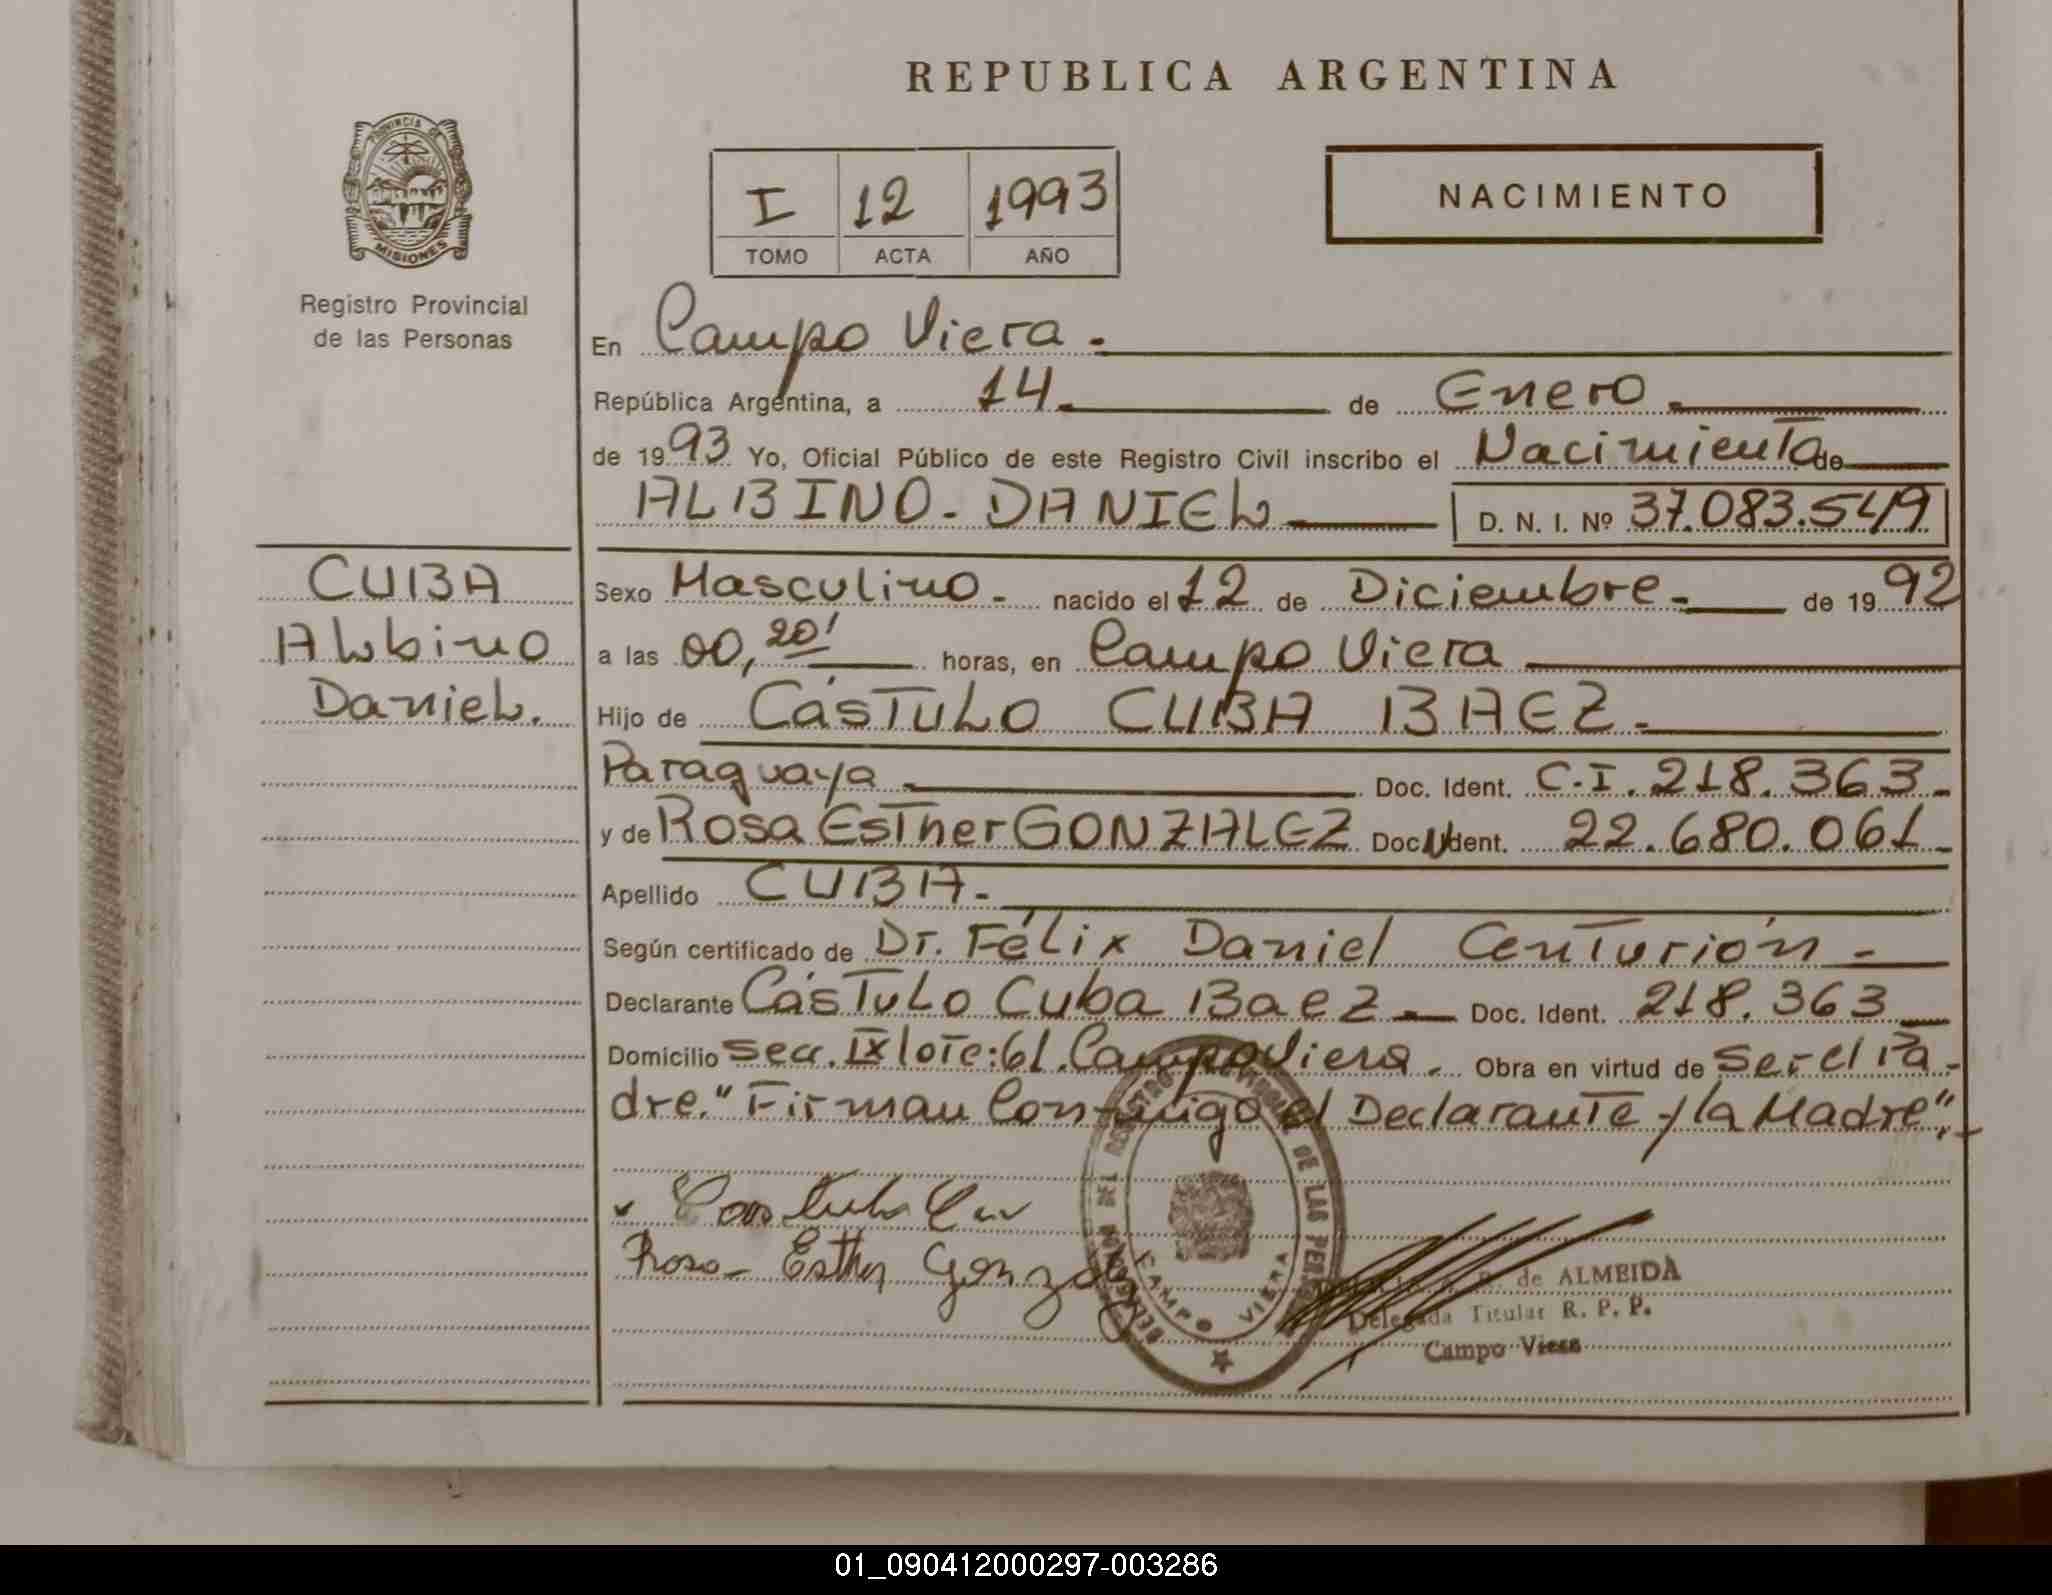 REPUBLICA ARGENTINA
PROVINCIA DE
MISIONES
Registro Provincial
de las Personas
I 12 1993
TOMO ACTA AÑO
NACIMIENTO
En Campo Viera.
República Argentina, a 14 de Enero.
de 1993 Yo, Oficial Público de este Registro Civil inscribo el Nacimiento de
ALBINO-DANIEL D. N. I. Nº 37.083.549
CUBA
Albino
Daniel.
Sexo Masculino- nacido el 12 de Diciembre- de 1992
a las 00,20' horas, en Campo Viera
Hijo de CáSTULO CUBA BAEZ-
Paraguaya Doc. Ident. C.I. 218.363-
y de Rosa Esther GONZALEZ Doc. Ident. 22.680.061-
Apellido CUBA-
Según certificado de Dr. Félix Daniel Centurión-
Declarante Cástulo Cuba Baez- Doc. Ident. 218.363
Domicilio secc. IX lote:61. Campo Viera. Obra en virtud de ser el Pa-
dre." Firman Conmigo el Declarante y la Madre".-
Rosa Esther Gonzalez
DEL REGISTRO PROVINCIAL DE LAS PERSONAS
CAMPO VIERA
de ALMEIDA
Delegada Titular R. P. P.
Campo Viera
01_090412000297-003286